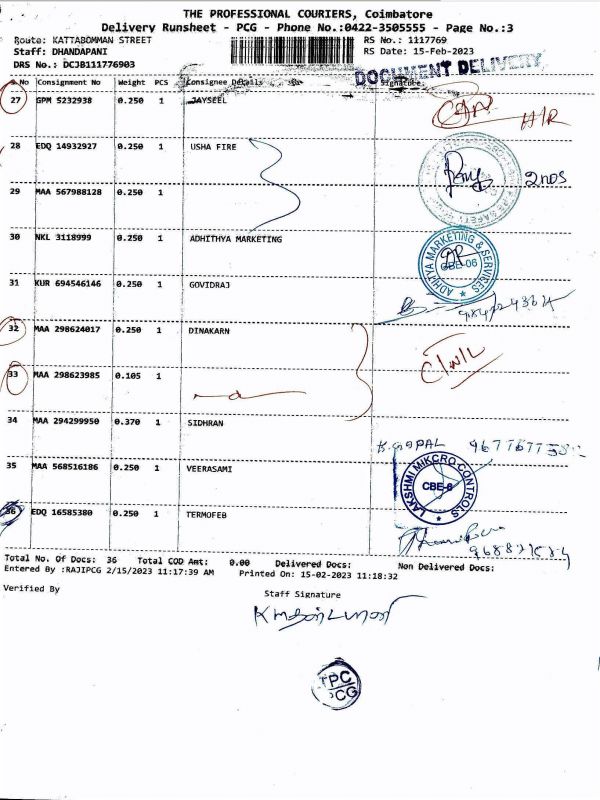 THE PROFESSIONAL COURIERS, Coimbatore
Delivery Runsheet - PCG - Phone No.:0422-3505555 - Page No.:3
Route: KATTABOMMAN STREET RS No.: 1117769
Staff: DHANDAPANI RS Date: 15-Feb-2023
DRS No.: DCJB111776903
DOCUMENT DELIVERY
S.No Consignment No Weight PCS Consignee Details Signature
27 GPM 5232938 0.250 1 JAYSEEL
28 EDQ 14932927 0.250 1 USHA FIRE
2nos
29 MAA 567988128 0.250 1
30 NKL 3118999 0.250 1 ADHITHYA MARKETING
ADHITYA MARKETING & SERVICES
CBE-06
31 KUR 694546146 0.250 1 GOVIDRAJ
32 MAA 298624017 0.250 1 DINAKARN
33 MAA 298623985 0.105 1
34 MAA 294299950 0.370 1 SIDHRAN
K.GOPAL
35 MAA 568516186 0.250 1 VEERASAMI
LAKSHMI MIKCRO CONTROLS
CBE-6
36 EDQ 16585380 0.250 1 TERMOFEB
Total No. Of Docs: 36 Total COD Amt: 0.00 Delivered Docs: Non Delivered Docs:
Entered By :RAJIPCG 2/15/2023 11:17:39 AM Printed On: 15-02-2023 11:18:32
Verified By Staff Signature
TPC
PCG